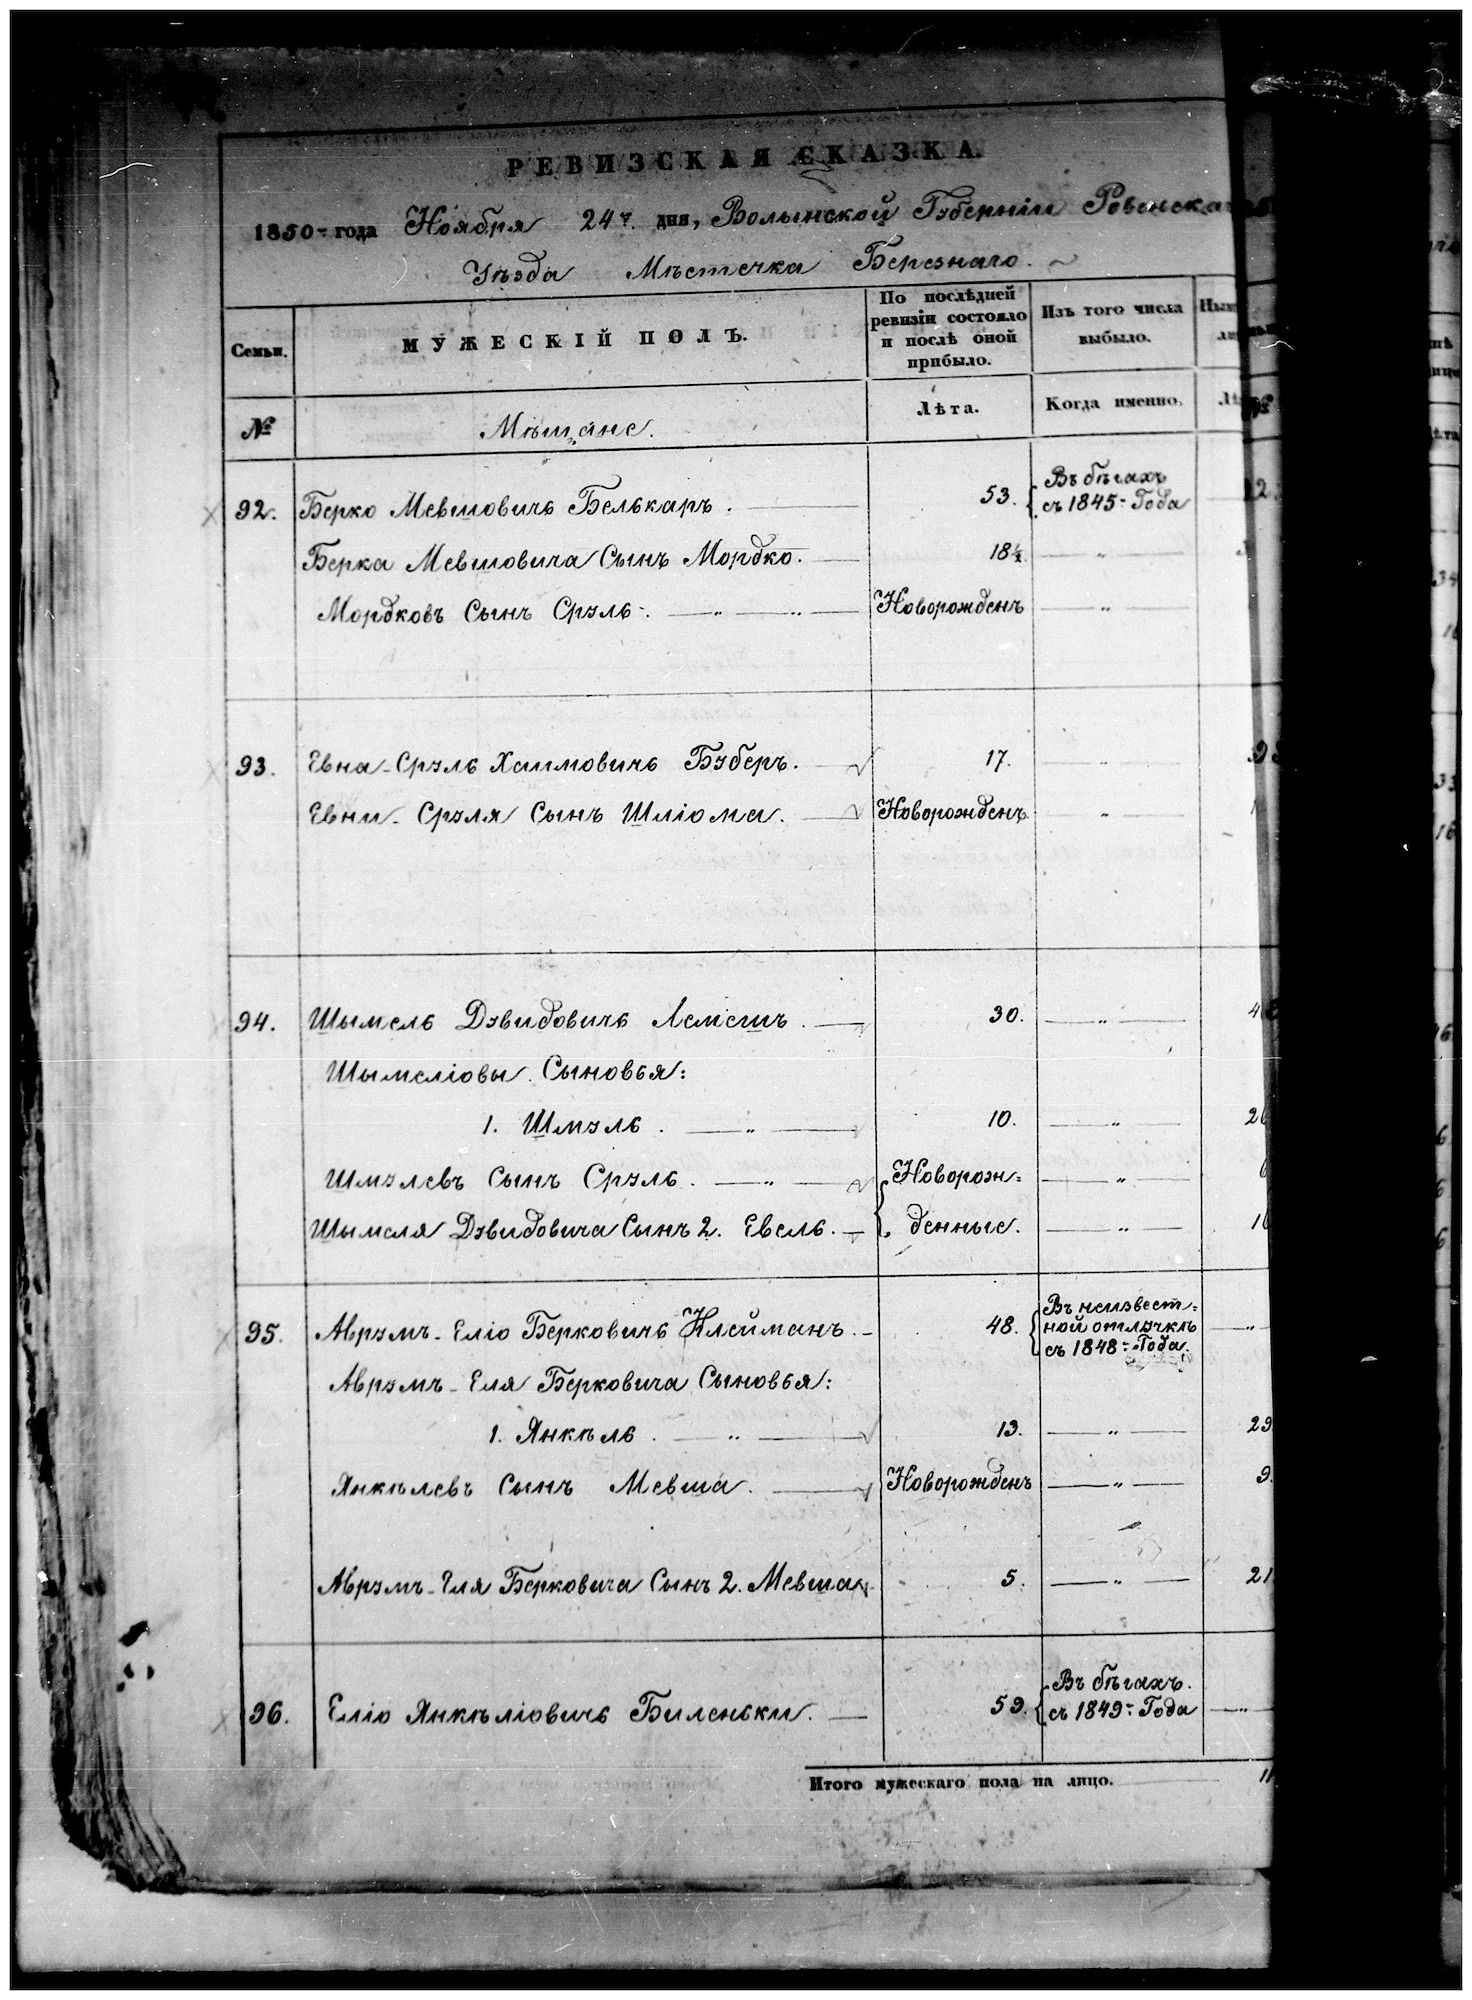 РЕВИЗСКАЯ СКАЗКА.
1850 = года Ноября 24 дня, Волынской Губерніи Ровенска
Уѣзда Мѣстечка Березнаго.
Семьи.
МУЖЕСКІЙ ПОЛЪ.
По послѣдней ревизіи состояло и послѣ оной прибыло.
Изъ того числа выбыло.
№
Мѣщане.
Лѣта.
Когда именно.
92. Берко Мевшовичь Белькаръ. 53. Въ бѣгахъ съ 1845 = Года
Берка Мевшовича Сынъ Мордко. 18½ "
Мордковъ Сынъ Сруль. " " Новорожденъ "
93. Евна-Сруль Хаимовичь Буберъ. 17. "
Евни-Сруля Сынъ Шліома. Новорожденъ "
94. Шымель Дувидовичь Лемешъ. 30. "
Шымеліовы Сыновья:
1. Шмуль. " 10. " 26
Шмулевъ Сынъ Сруль. " Новорож= "
Шымеля Дувидовича Сынъ 2. Евель. денные. "
95. Аврумъ-Еліо Берковичь Клейманъ. 48. Въ неизвест=ной отлучкѣ съ 1848 = Года. "
Аврумъ-Еля Берковича Сыновья:
1. Янкѣль. " 13. " 29
Янкѣлевъ Сынъ Мевша. Новорожденъ " 9.
Аврумъ-Еля Берковича Сынъ 2. Мевша 5. " 21
96. Еліо Янкѣліовичь Биленьки. 59. Въ бѣгахъ. съ 1849 = Года "
Итого мужескаго пола на лицо. 11